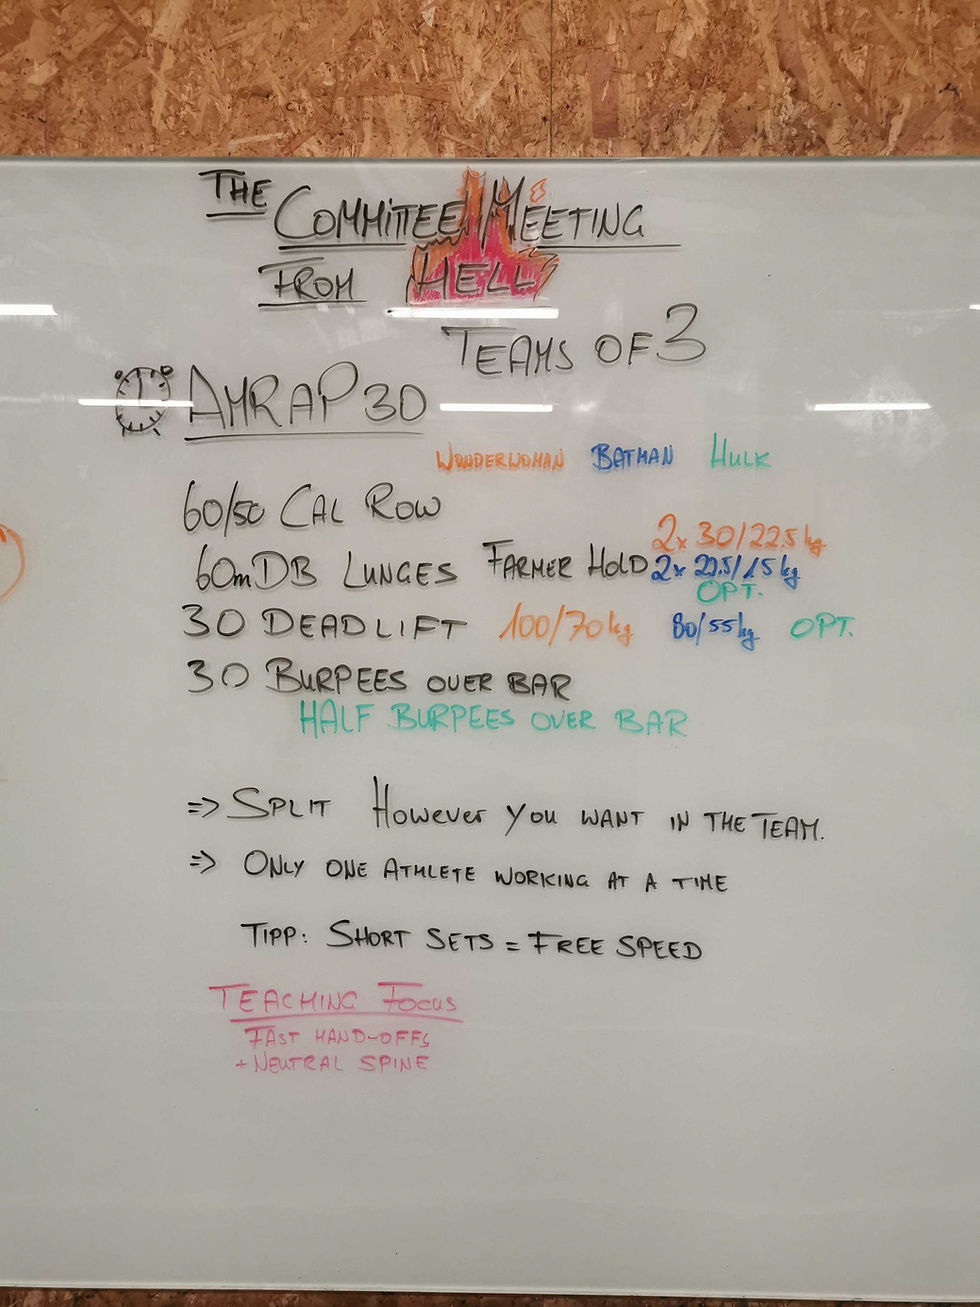 THE COMMITTEE MEETING
FROM HELL
TEAMS OF 3
AMRAP 30
WONDERWOMAN BATMAN HULK
60/50 CAL ROW
60m DB LUNGES FARMER HOLD 2x 30/22.5 kg
2x 22.5/15 kg
OPT.
30 DEADLIFT 100/70 kg 80/55 kg OPT.
30 BURPEES OVER BAR
HALF BURPEES OVER BAR
=> SPLIT HOWEVER YOU WANT IN THE TEAM.
=> ONLY ONE ATHLETE WORKING AT A TIME
TIPP: SHORT SETS = FREE SPEED
TEACHING FOCUS
FAST HAND-OFFS
+ NEUTRAL SPINE